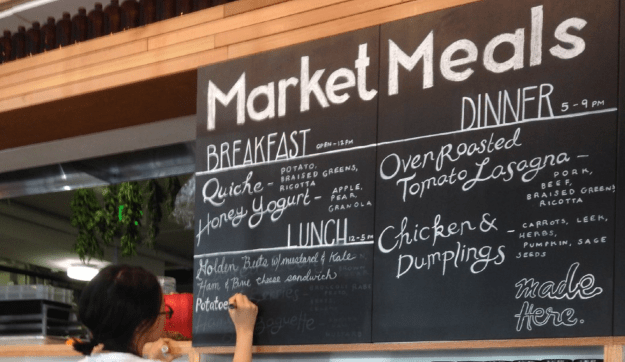 Market Meals
BREAKFAST OPEN-12PM
Quiche - POTATO,
BRAISED GREENS,
RICOTTA
Honey Yogurt - APPLE,
PEAR,
GRANOLA
LUNCH 12-5PM
Golden Beets w/ mustard & Kale
Ham & Blue cheese sandwich
Potatoe
DINNER 5-9 PM
Oven Roasted
Tomato Lasagna -
PORK,
BEEF,
BRAISED GREENS,
RICOTTA
Chicken &
Dumplings -
CARROTS, LEEK,
HERBS,
PUMPKIN, SAGE
SEEDS
made
Here.